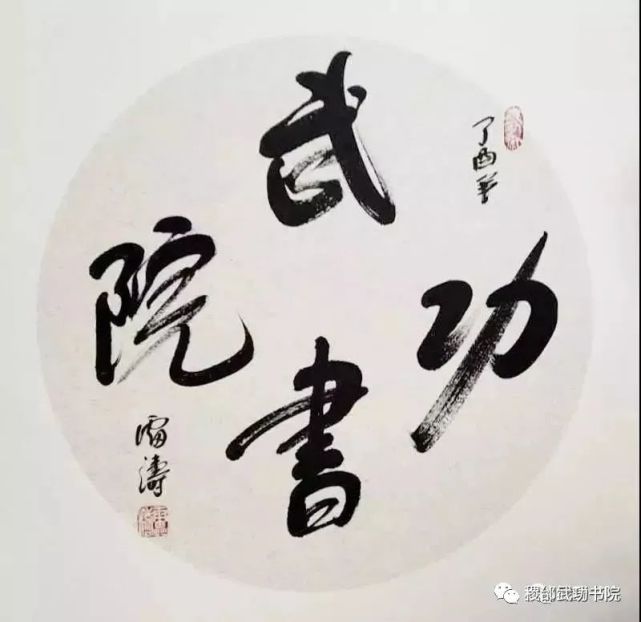 武
功
書
院
丁酉年
雷濤
稷邰武功书院